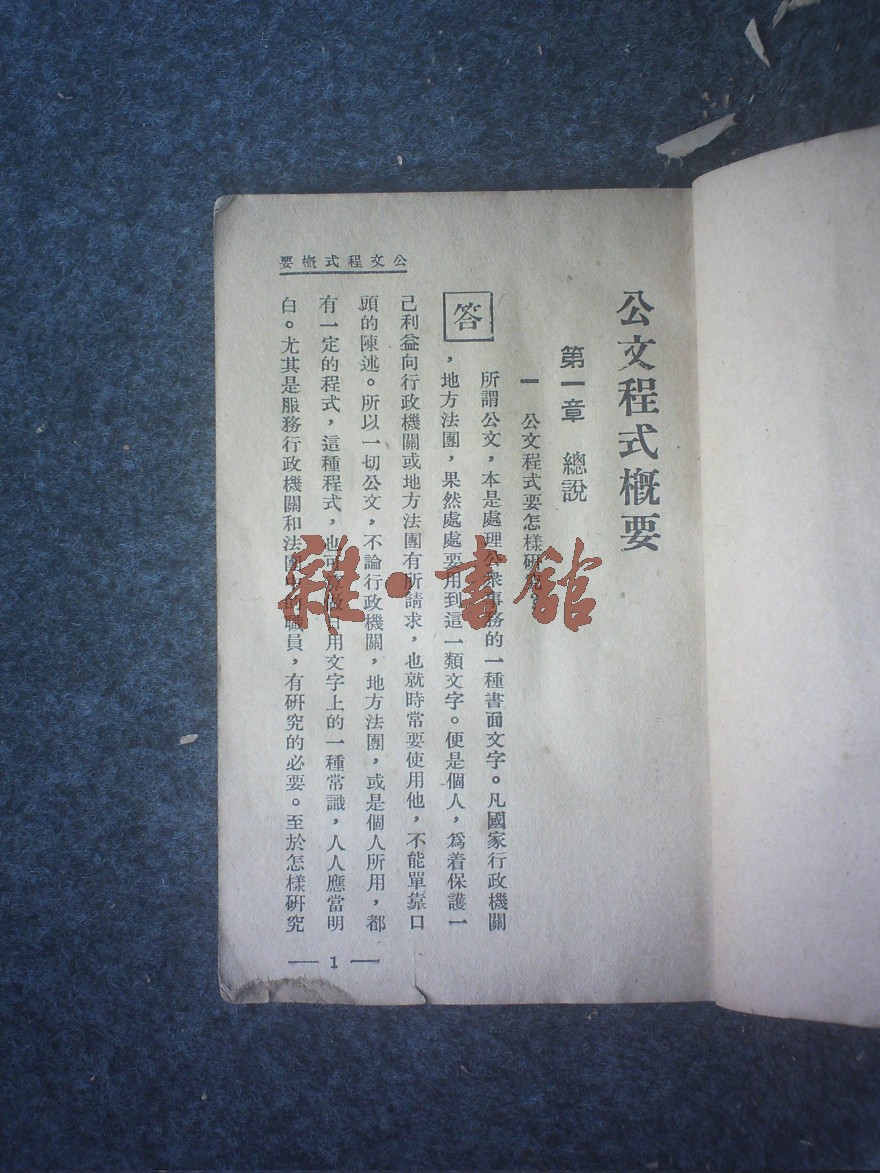 公文程式槪要
第一章 總說
一 公文程式要怎樣研究？
答
所謂公文，本是處理公衆事務的一種書面文字。凡國家行政機關
，地方法團，果然處處要用到這一類文字。便是個人，爲着保護一
己利益向行政機關或地方法團有所請求，也就時常要使用他，不能單靠口
頭的陳述。所以一切公文，不論行政機關，地方法團，或是個人所用，都
有一定的程式，這種程式，也可算做日用文字上的一種常識，人人應當明
白。尤其是服務行政機關和法團中的職員，有研究的必要。至於怎樣研究
公文程式槪要
— 1 —
雜·書館